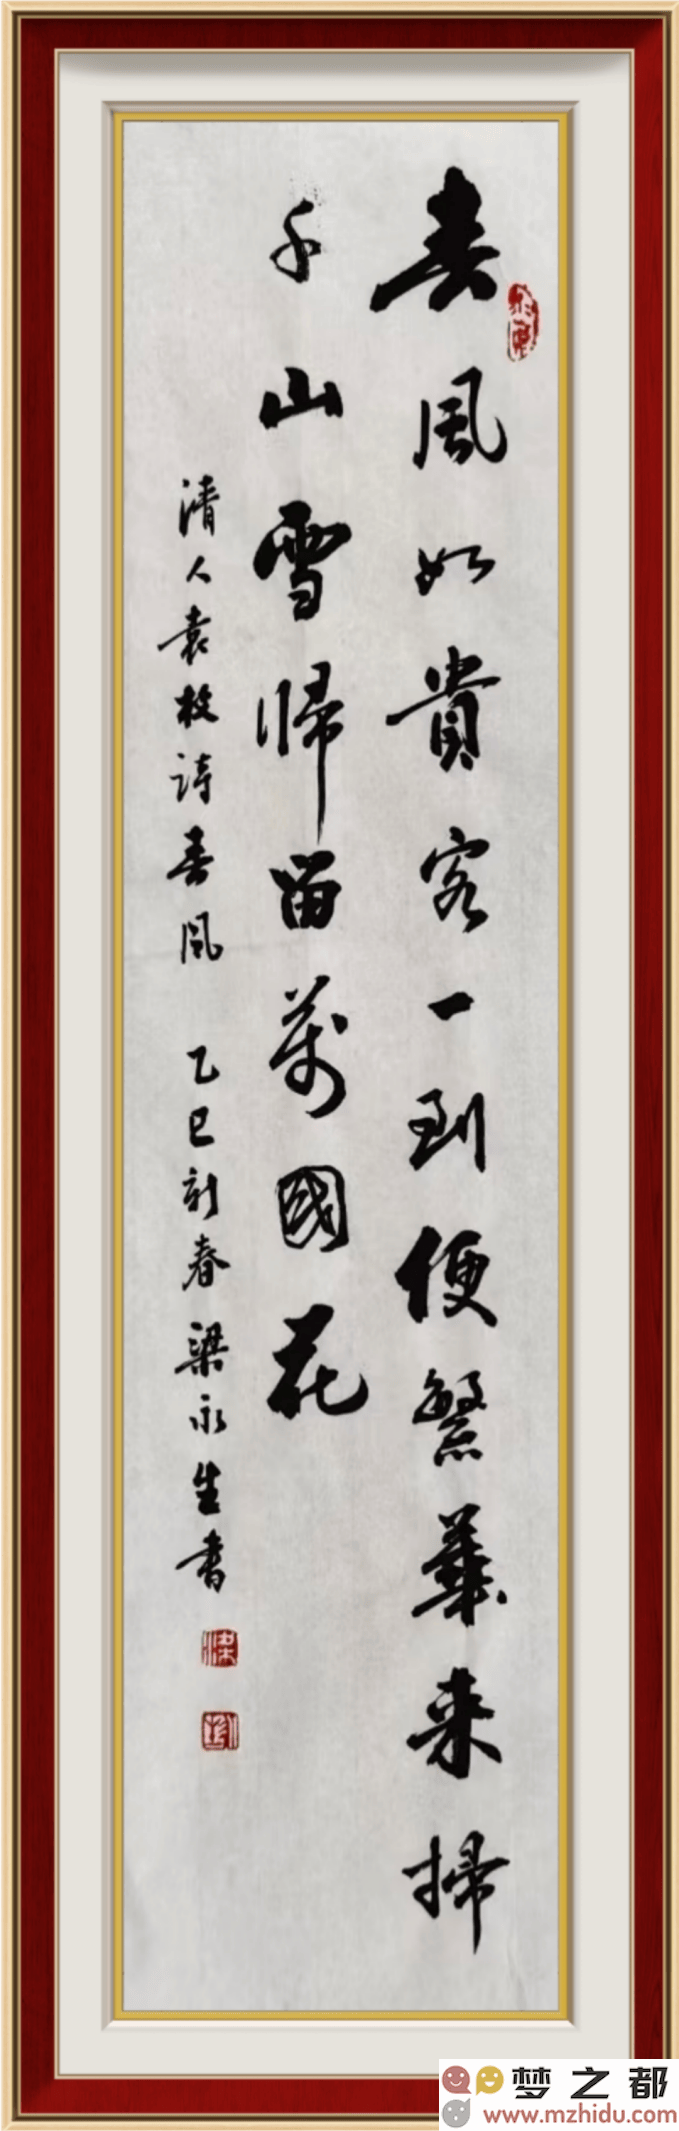 春風如貴客一到便繁華来掃
千山雪歸留萬國花
清人袁枚詩春風 乙巳新春梁永生書
梦之都
www.mzhidu.com